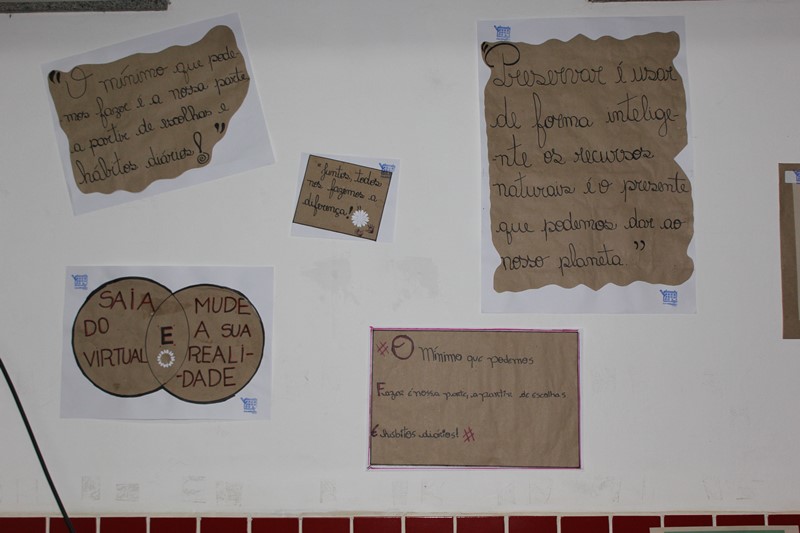 "O mínimo que pode-
mos fazer é a nossa parte
a partir de escolhas e
hábitos diários!"
"Juntos, todos
nós fazemos a
diferença!"
"Preservar é usar
de forma intelige-
-nte os recursos
naturais é o presente
que podemos dar ao
nosso planeta."
SAIA
DO
VIRTUAL
E
MUDE
A SUA
REALI-
-DADE
O Mínimo que podemos
Fazer é nossa parte, a partir de escolhas
E hábitos diários!